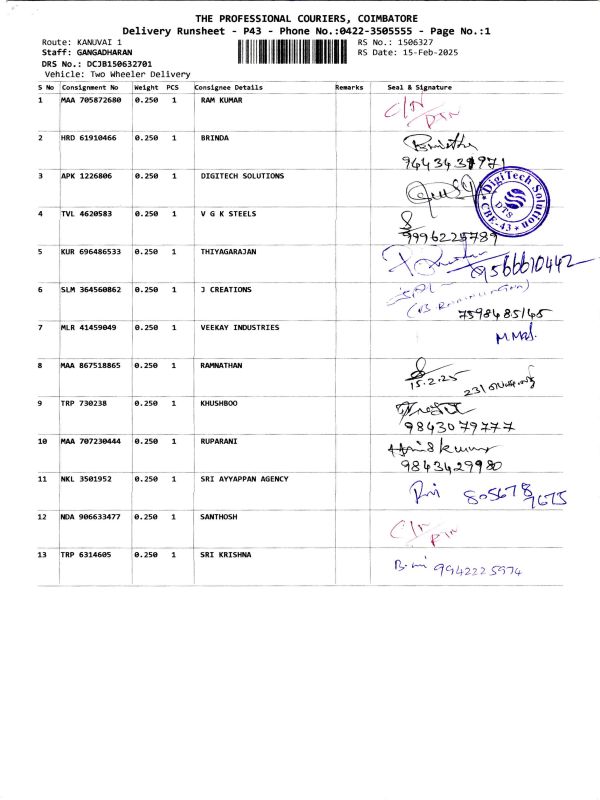 THE PROFESSIONAL COURIERS, COIMBATORE
Delivery Runsheet - P43 - Phone No.:0422-3505555 - Page No.:1
Route: KANUVAI 1 RS No.: 1506327
Staff: GANGADHARAN RS Date: 15-Feb-2025
DRS No.: DCJB150632701
Vehicle: Two Wheeler Delivery
S No Consignment No Weight PCS Consignee Details Remarks Seal & Signature
1 MAA 705872680 0.250 1 RAM KUMAR C/N
2 HRD 61910466 0.250 1 BRINDA
3 APK 1226806 0.250 1 DIGITECH SOLUTIONS DigiTech Solution CBE-43
4 TVL 4620583 0.250 1 V G K STEELS 9996225789
5 KUR 696486533 0.250 1 THIYAGARAJAN 9566610442
6 SLM 364560862 0.250 1 J CREATIONS
7598485145
7 MLR 41459049 0.250 1 VEEKAY INDUSTRIES
8 MAA 867518865 0.250 1 RAMNATHAN
15.2.25
9 TRP 730238 0.250 1 KHUSHBOO
9843079777
10 MAA 707230444 0.250 1 RUPARANI
9843429980
11 NKL 3501952 0.250 1 SRI AYYAPPAN AGENCY 805678
7675
12 NDA 906633477 0.250 1 SANTHOSH C/N
13 TRP 6314605 0.250 1 SRI KRISHNA 9942225974